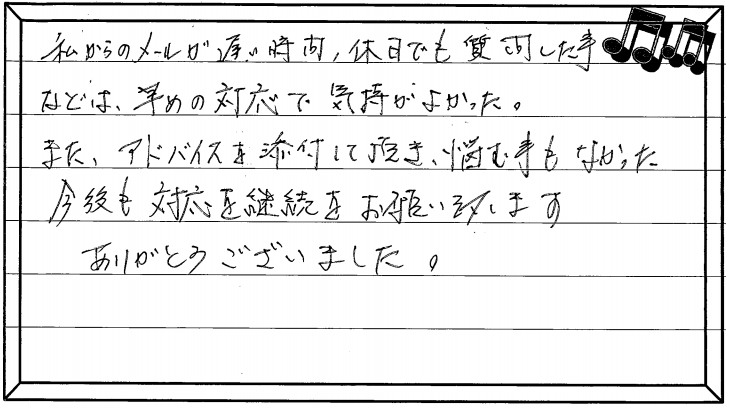 私からのメールが遅い時間、休日でも質問した事
などは、早めの対応で気持がよかった。
また、アドバイスを添付して頂き、悩む事もなかった
今後も対応を継続をお願い致します
ありがとうございました。